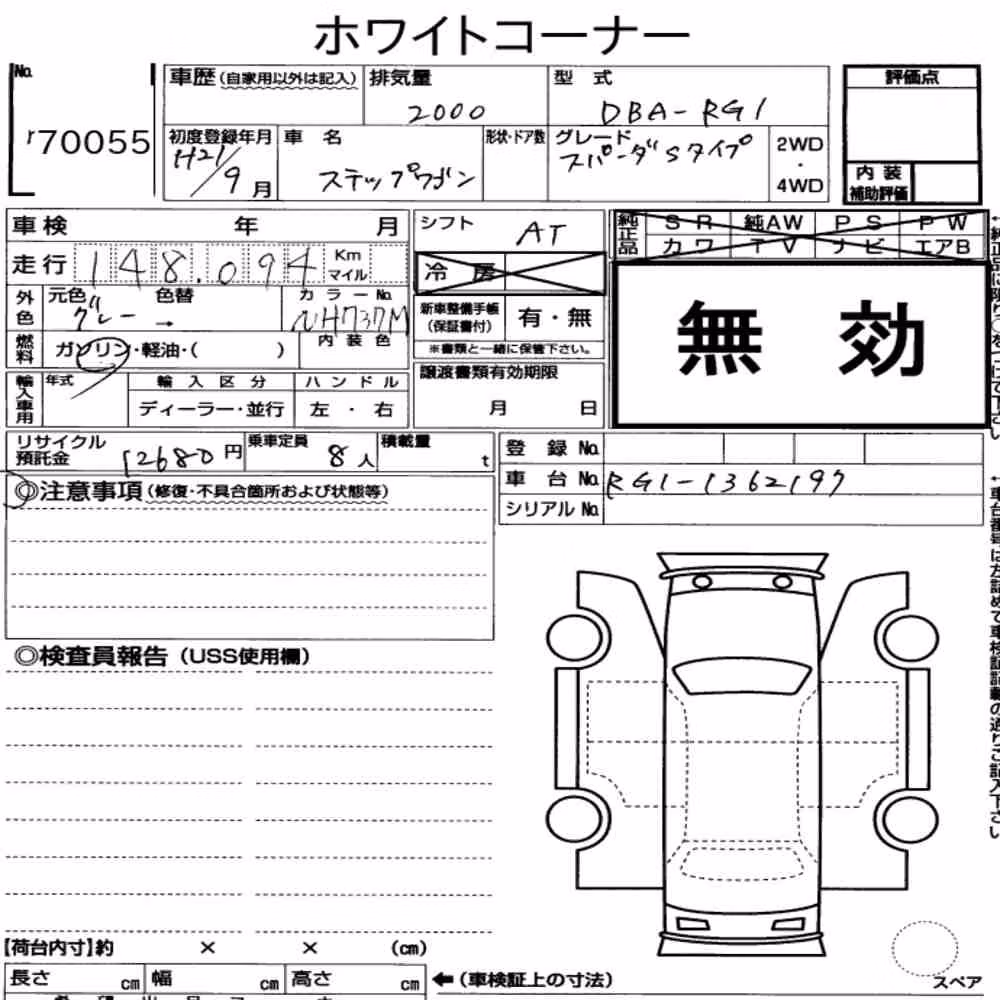 ホワイトコーナー
No. 車歴(自家用以外は記入) 排気量 型 式 評価点
2000 DBA-RG1
r70055
初度登録年月 車 名 形状・ドア数 グレード 2WD
H21/9月 ステップワゴン スパーダSタイプ ・
4WD
内 装
補助評価
車検 年 月 シフト AT 純正品 SR 純AW PS PW
カワ TV ナビ エアB
走行 148.094 Km
マイル
冷 房
無 効
外色 元色 色替 カラーNo.
グレー → NH737M
新車整備手帳
(保証書付) 有・無
※書類と一緒に保管下さい。
燃料 ガソリン・軽油・( ) 内装色
譲渡書類有効期限
月 日
輸入車用 年式 輸入区分 ハンドル
ディーラー・並行 左・右
リサイクル
預託金 12680円 乗車定員 8人 積載量 t
登 録 No.
車 台 No. RG1-1362197
シリアル No.
◎注意事項(修復・不具合箇所および状態等)
◎検査員報告(USS使用欄)
【荷台内寸】約 × × (cm)
長さ cm 幅 cm 高さ cm ←(車検証上の寸法)
スペア